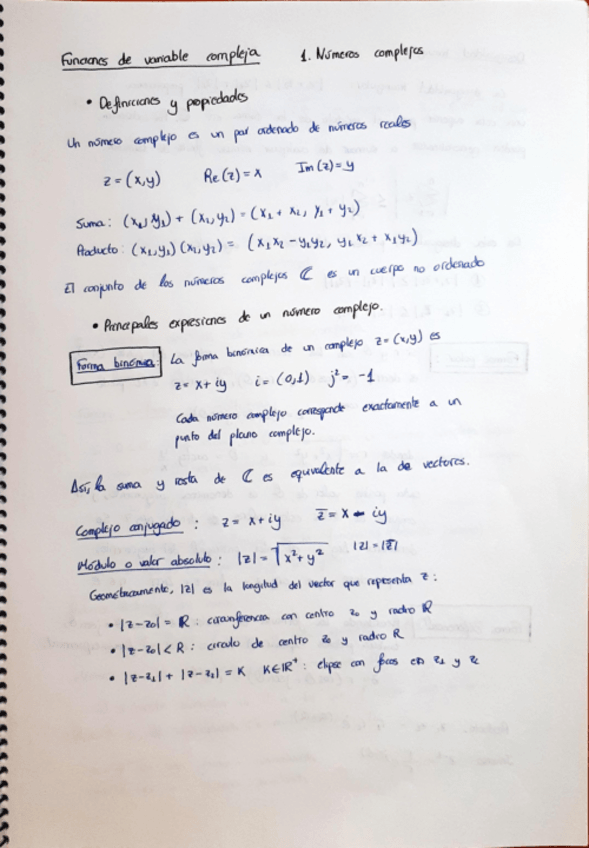 Funciones de variable compleja 1. Números complejos
• Definiciones y propiedades
Un número complejo es un par ordenado de números reales
z = (x,y) Re(z) = x Im(z) = y
Suma: (x₁, y₁) + (x₂, y₂) = (x₁ + x₂, y₁ + y₂)
Producto: (x₁, y₁) (x₂, y₂) = (x₁x₂ - y₁y₂, y₁x₂ + x₁y₂)
El conjunto de los números complejos ℂ es un cuerpo no ordenado
• Principales expresiones de un número complejo.
Forma binómica: La forma binómica de un complejo z = (x,y) es
z = x + iy i = (0,1) j² = -1
Cada número complejo corresponde exactamente a un
punto del plano complejo.
Así, la suma y resta de ℂ es equivalente a la de vectores.
Complejo conjugado : z = x + iy z̅ = x - iy
Módulo o valor absoluto : |z| = √x² + y² |z| = |z̅|
Geométricamente, |z| es la longitud del vector que representa z :
• |z - z₀| = R : circunferencia con centro z₀ y radio R
• |z - z₀| < R : circulo de centro z₀ y radio R
• |z - z₁| + |z - z₂| = K K∈ℝ⁺ : elipse con focos en z₁ y z₂